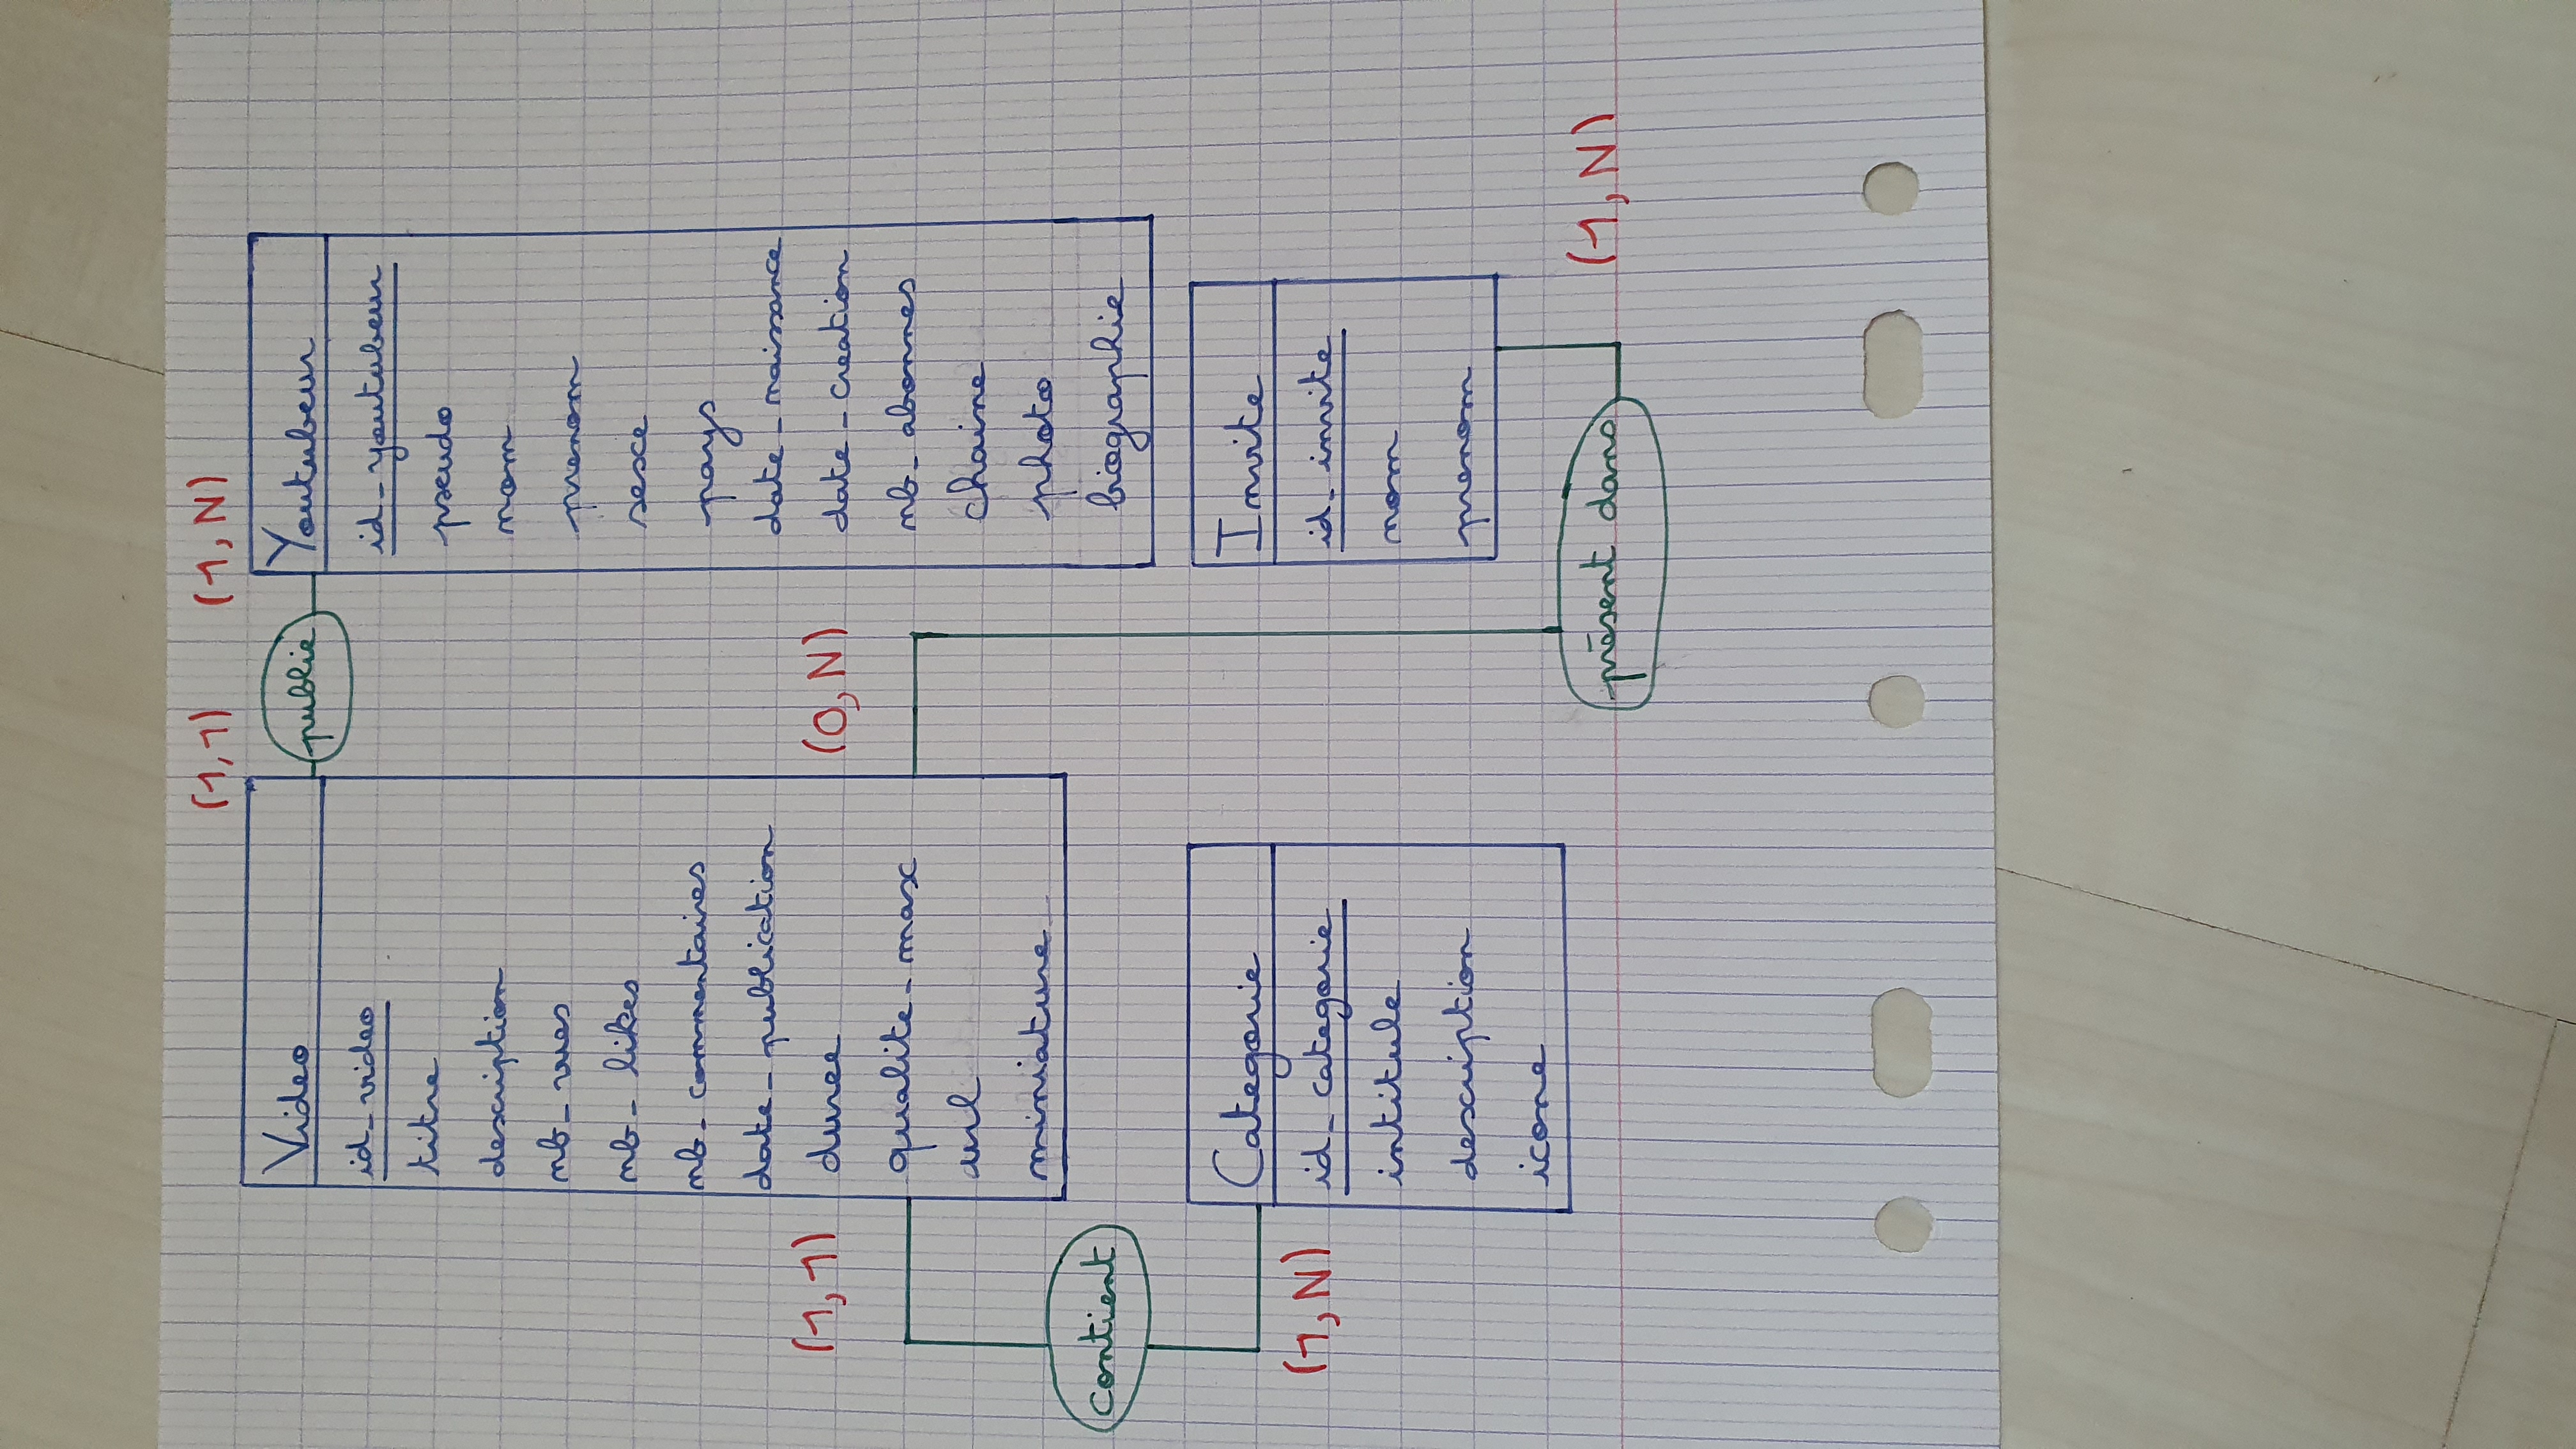 (1,1)
(1,N)
Video
publie
Youtubeur
id_video
titre
description
nb_vues
nb_likes
nb_commentaires
date_publication
duree
qualite_max
url
miniature
id_youtubeur
pseudo
nom
prenom
sexe
pays
date_naissance
date_creation
nb_abonnes
chaine
photo
biographie
(1,1)
(0,N)
contient
(1,N)
Categorie
id_categorie
intitule
description
icone
Invite
id_invite
nom
prenom
présent dans
(1,N)